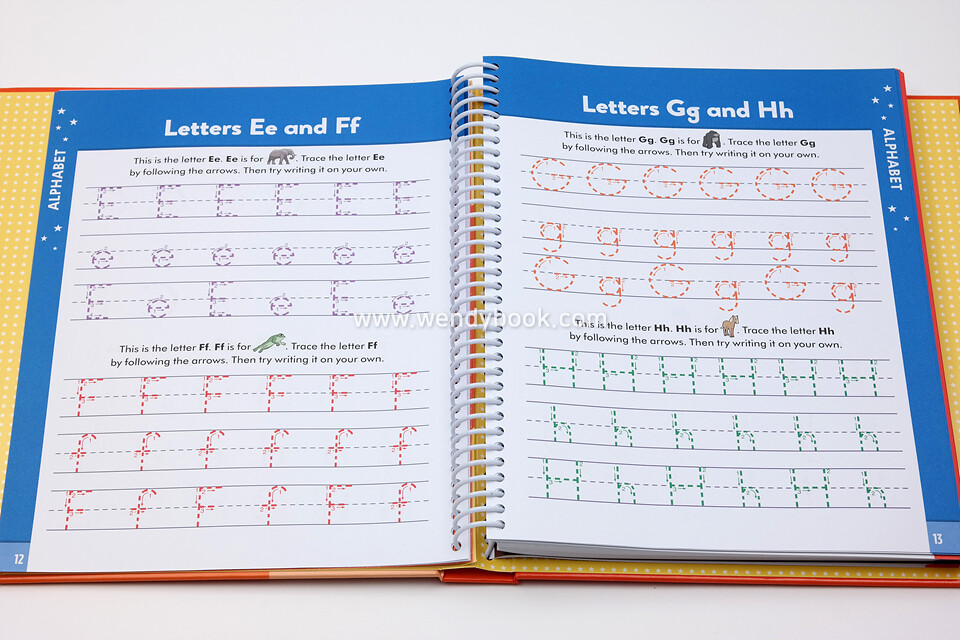 ALPHABET
Letters Ee and Ff
This is the letter Ee. Ee is for . Trace the letter Ee
by following the arrows. Then try writing it on your own.
E E E E E E
e e e e e e
E e E e E e
This is the letter Ff. Ff is for . Trace the letter Ff
by following the arrows. Then try writing it on your own.
F F F F F F
f f f f f f
F f F f F f
12
Letters Gg and Hh
ALPHABET
This is the letter Gg. Gg is for . Trace the letter Gg
by following the arrows. Then try writing it on your own.
G G G G G G
g g g g g g
G g G g G g
www.wendybook.com
This is the letter Hh. Hh is for . Trace the letter Hh
by following the arrows. Then try writing it on your own.
H H H H H H
h h h h h h
H h H h H h
13